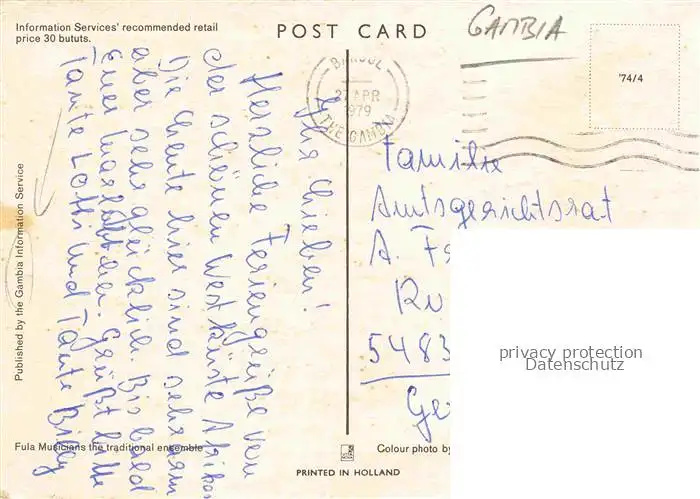 Information Services' recommended retail
price 30 bututs.
POST CARD
GAMBIA
'74/4
BANJUL
27 APR
1979
THE GAMBIA
Ihr Lieben!
Herzliche Feriengrüße von
der schönen Westküste Afrikas
Die Leute hier sind sehr arm
aber sehr glücklich. Bis bald
Euer
Grüßt bitte
Tante Lotti und Tante Billy
Familie
Amtsgerichtsrat
A. Fe
Ru
5483
Ge
privacy protection
Datenschutz
Published by the Gambia Information Service
Fula Musicians the traditional ensemble
Colour photo by
PRINTED IN HOLLAND